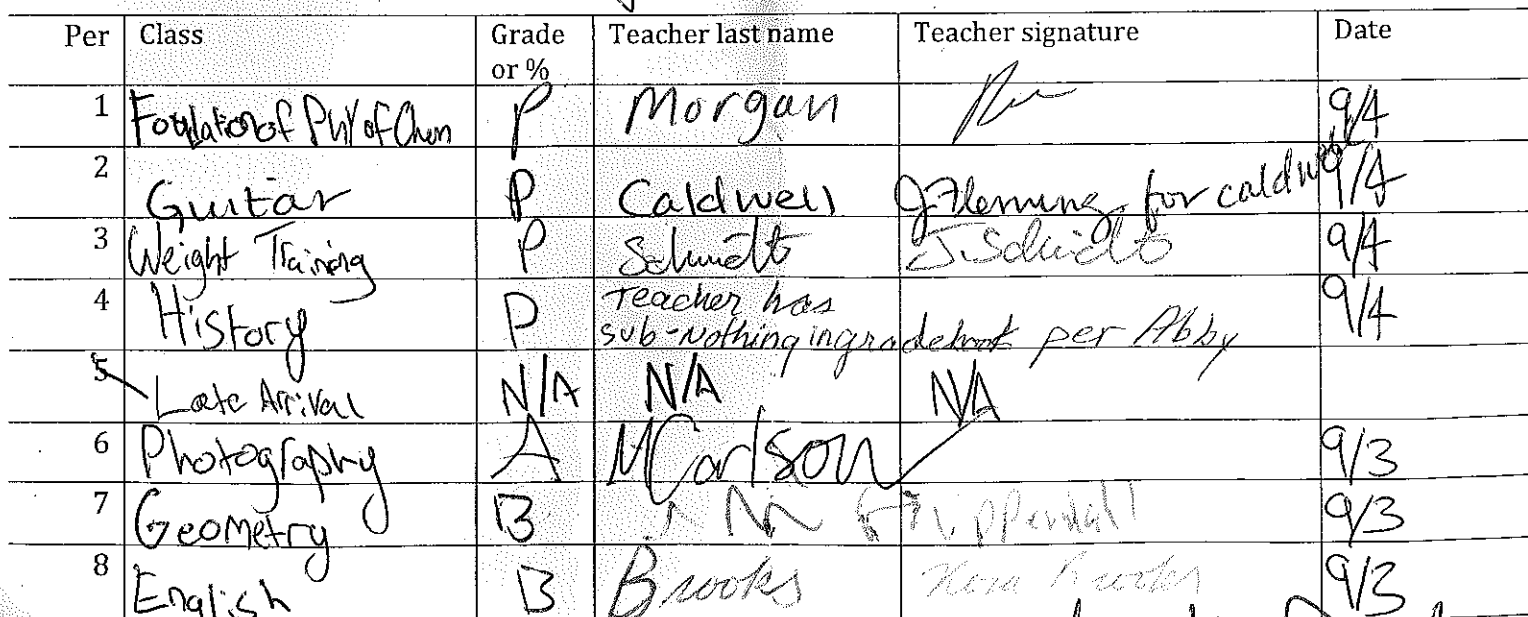 Per Class Grade or % Teacher last name Teacher signature Date
1 Foundation of Phy of Chem P Morgan 9/4
2 Guitar P Caldwell J Fleming for caldwell 9/4
3 Weight Training P Schmidt J. Schmidt 9/4
4 History P Teacher has 9/4
sub-nothing in gradebook per Abby
5 Late Arrival N/A N/A N/A
6 Photography A M Carlson 9/3
7 Geometry B 9/3
8 English B Brooks Brooks 9/3